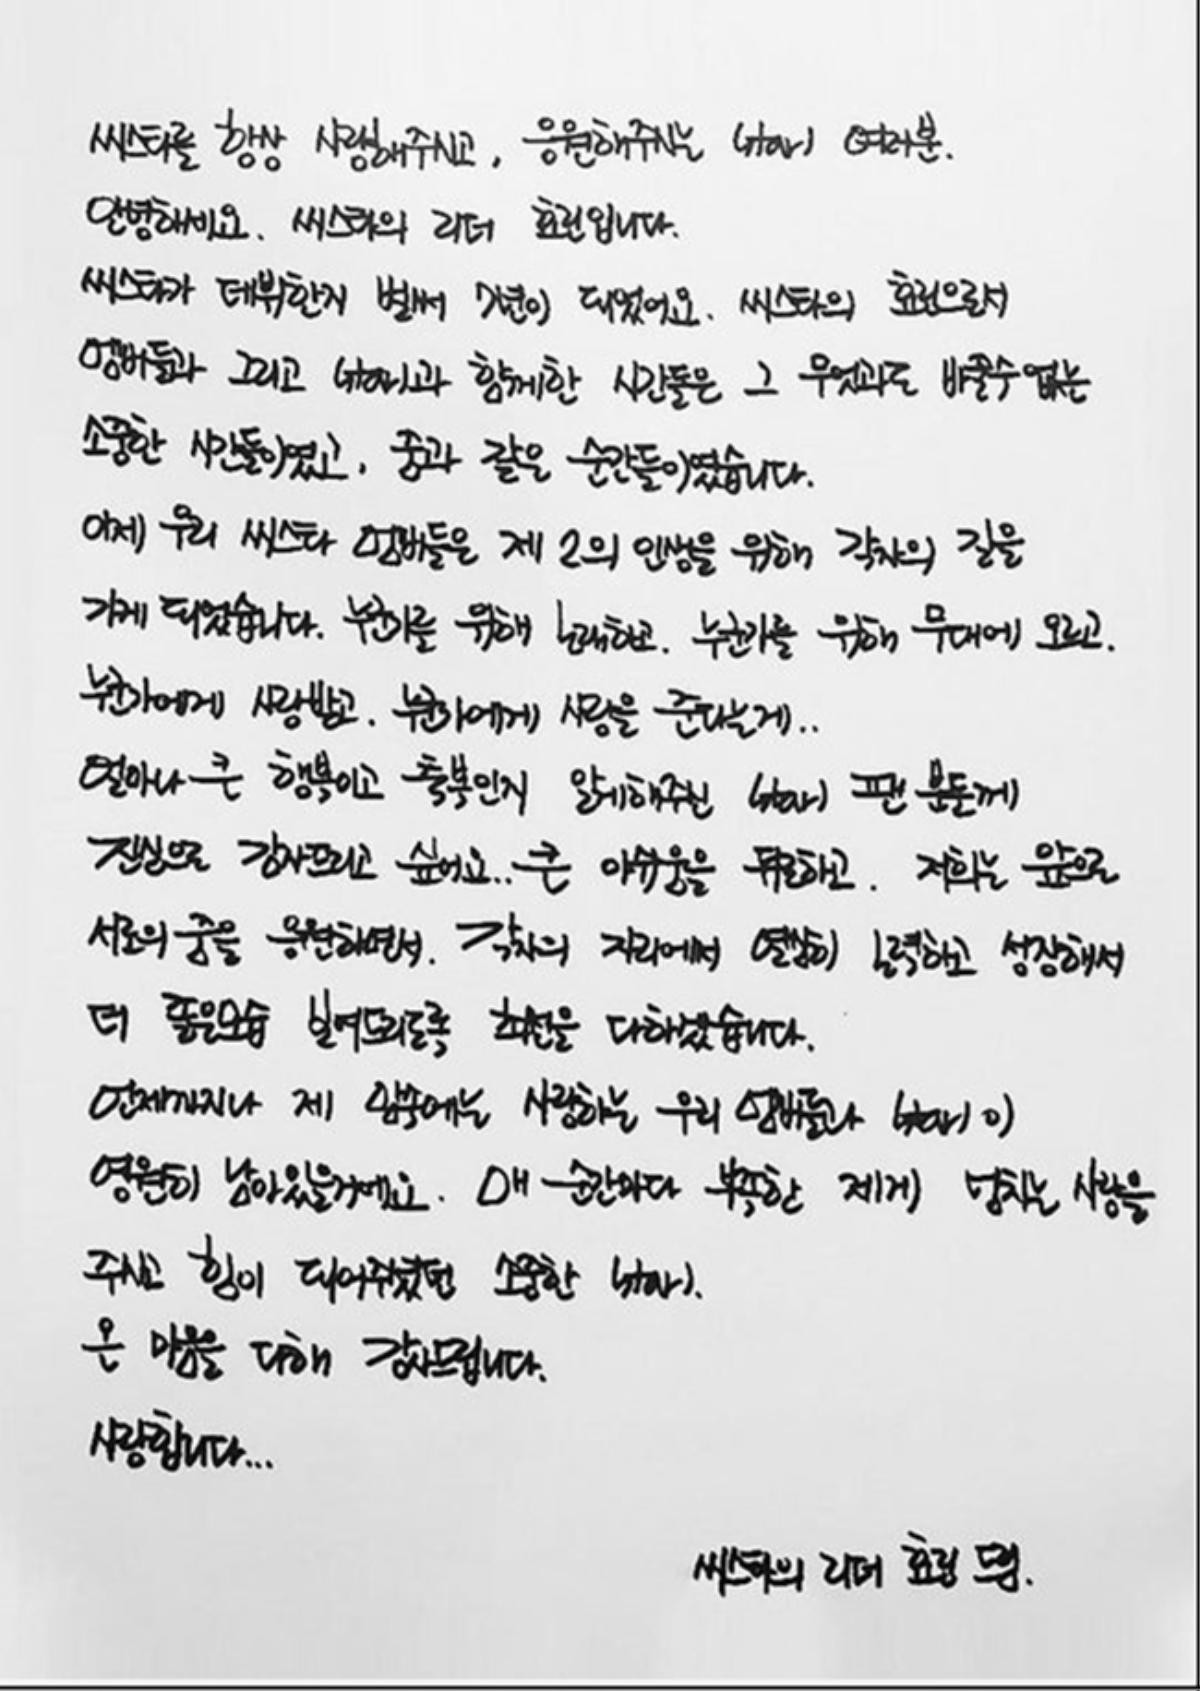 씨스타를 항상 사랑해주시고, 응원해주시는 star1 여러분.
안녕하세요. 씨스타의 리더 효린입니다.
씨스타가 데뷔한지 벌써 7년이 되었어요. 씨스타의 효린으로서
멤버들과 그리고 star1과 함께한 시간들은 그 무엇과도 바꿀수없는
소중한 시간들이였고, 꿈과 같은 순간들이였습니다.
이제 우리 씨스타 멤버들은 제 2의 인생을 위해 각자의 길을
가게 되었습니다. 누군가를 위해 노래하고. 누군가를 위해 무대에 오르고.
누군가에게 사랑받고. 누군가에게 사랑을 준다는게..
얼마나 큰 행복이고 축복인지 알게해주신 star1 팬 분들께
진심으로 감사드리고 싶어요.. 큰 아쉬움을 뒤로하고. 저희는 앞으로
서로의 꿈을 응원하면서. 각자의 자리에서 열심히 노력하고 성장해서
더 좋은모습 보여드리도록 최선을 다하겠습니다.
언제까지나 제 맘속에는 사랑하는 우리 멤버들과 star1 이
영원히 남아있을거에요. 매 순간마다 부족한 제게 넘치는 사랑을
주시고 힘이 되어주셨던 소중한 star1.
온 마음을 다해 감사드립니다.
사랑합니다...
씨스타의 리더 효린 드림.